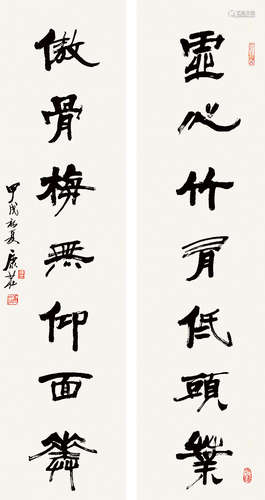 虛心竹有低頭葉
傲骨梅無仰面華
甲戌初夏康莊